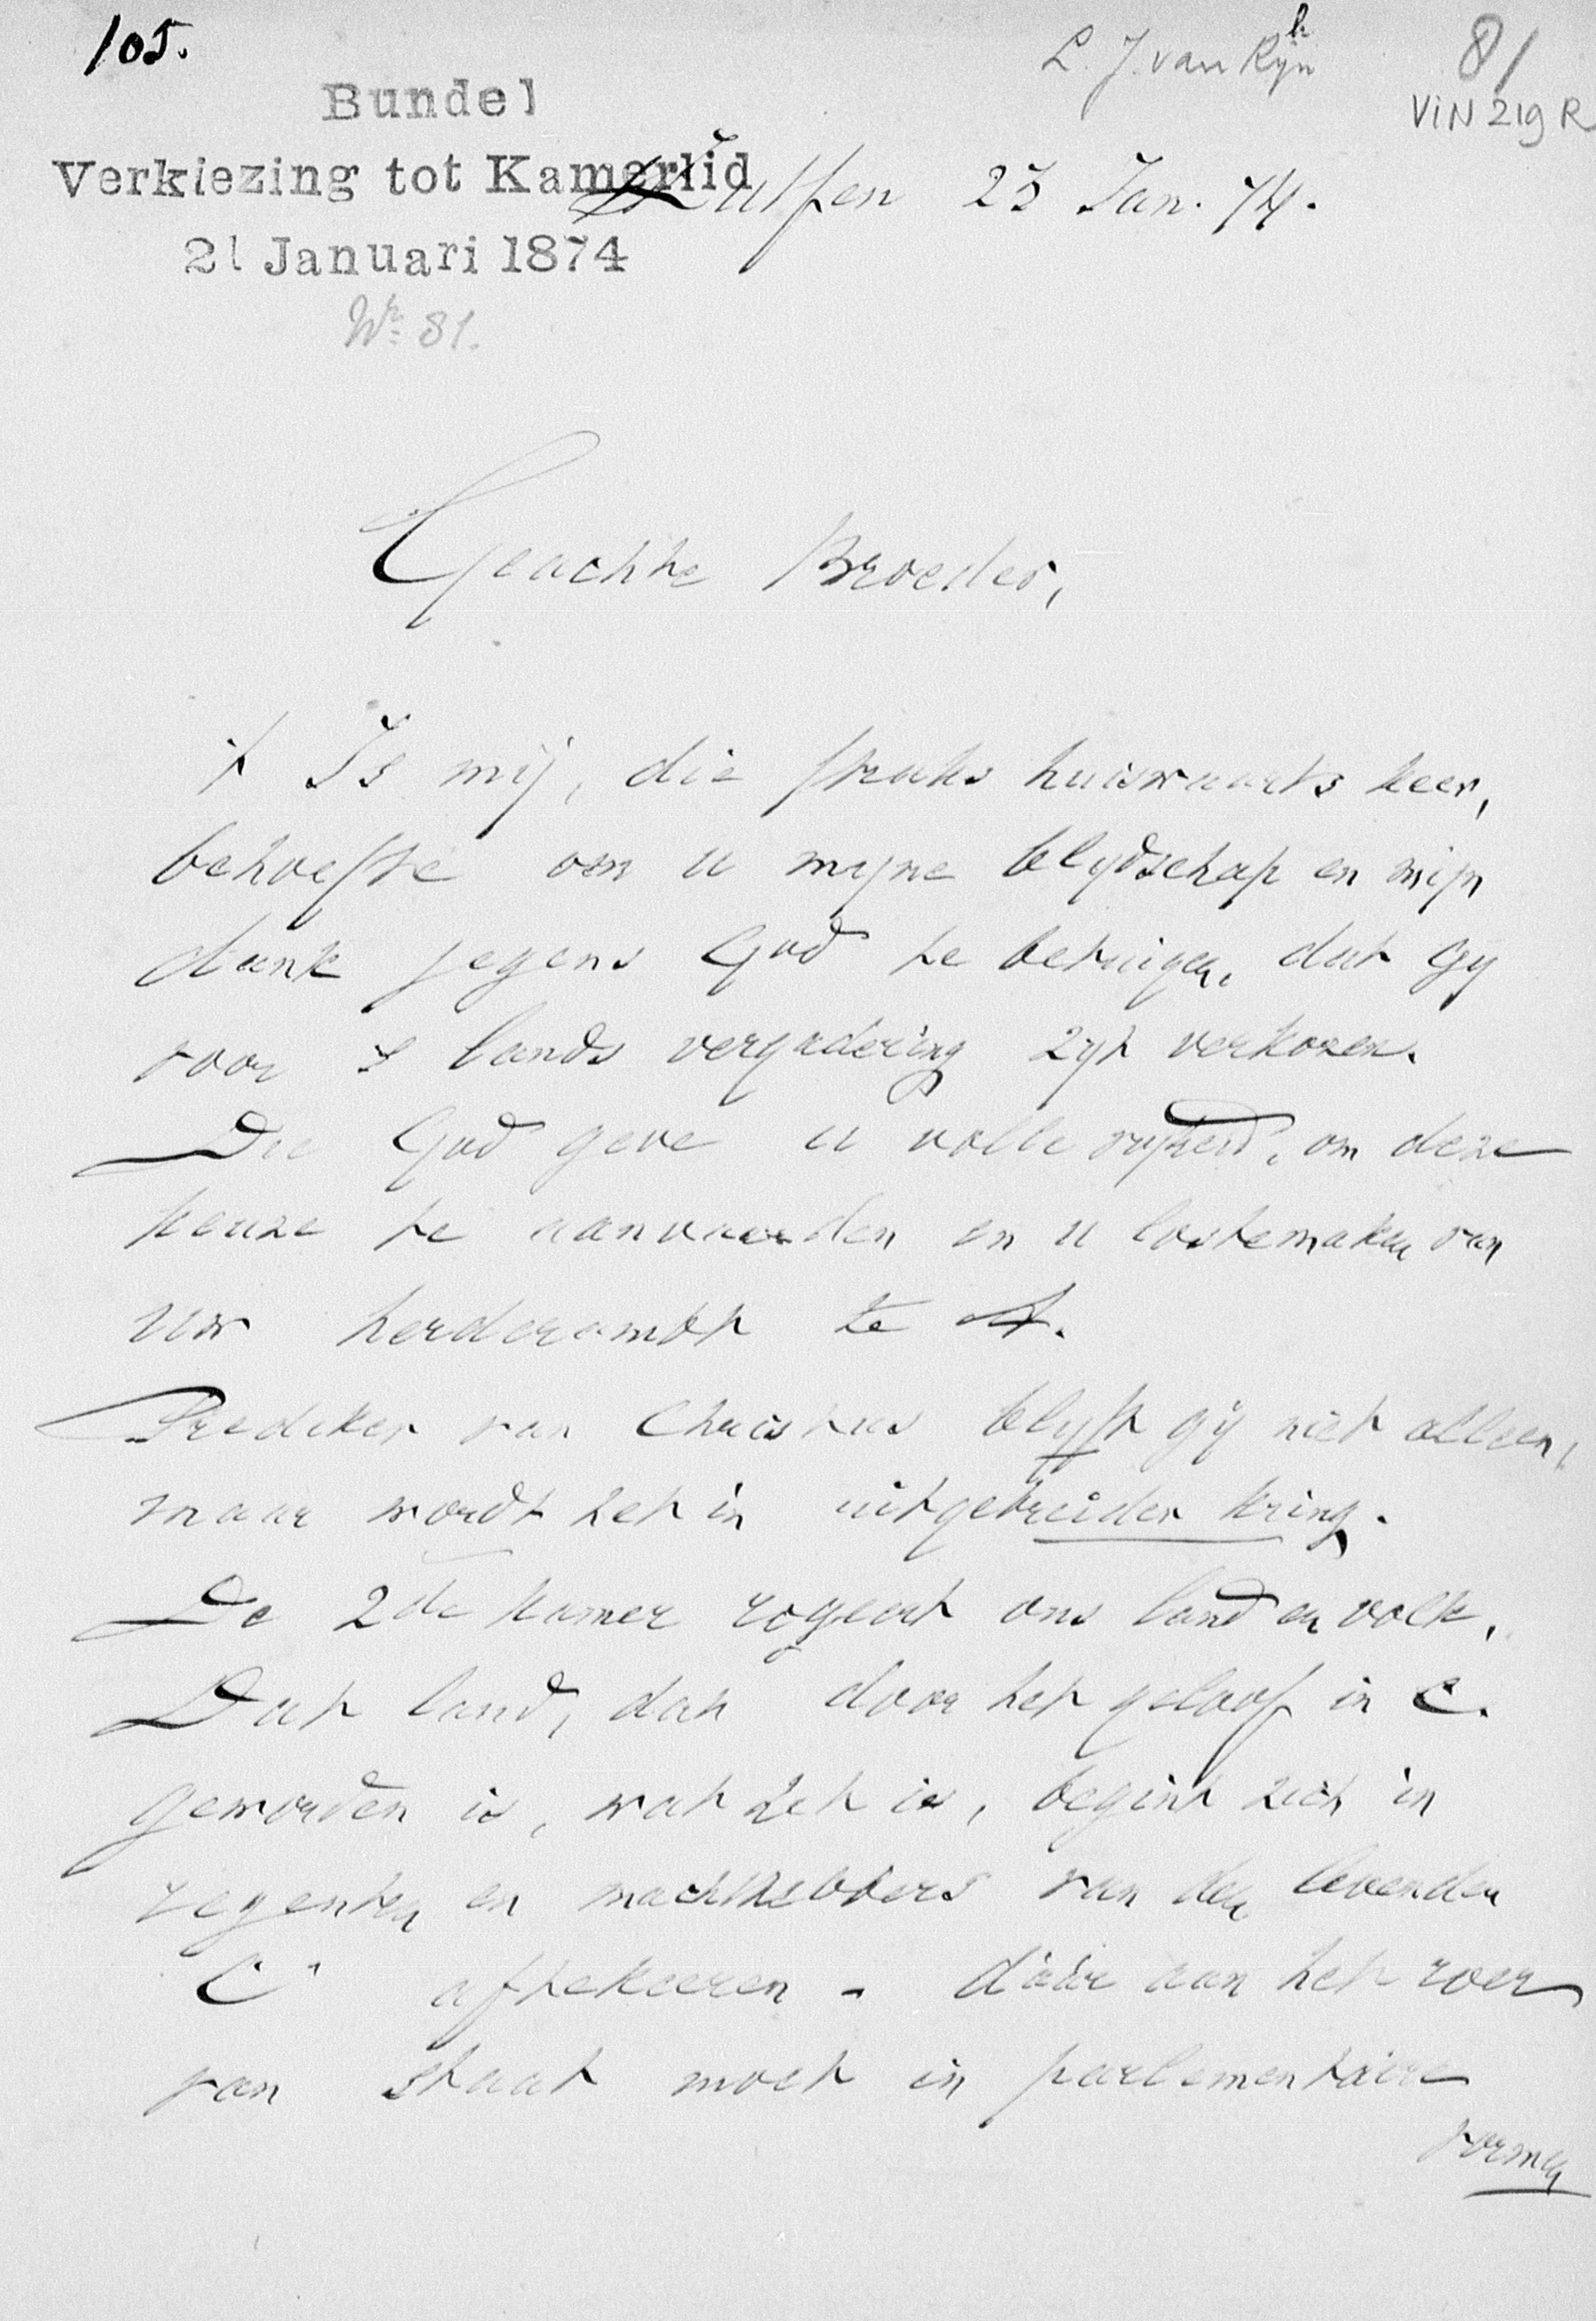 105.
L. J. van Rijn
81
VIN 219 R
Bundel
Verkiezing tot Kamerlid
Zutfen 23 Jan. 74.
21 Januari 1874
Nr 81.
Geachte Broeder,
t Is mij, die straks huiswaarts keer,
behoefte om u mijne blijdschap en mijn
dank jegens God te betuigen, dat Gij
voor 's lands vergadering zijt verkozen.
Die God geve u volle vrijheid, om deze
keuze te aanvaarden en u lostemaken van
uw herderambt te A.
Prediker van Christus blijft gij niet alleen,
maar wordt het in uitgebreider kring.
De 2de kamer regeert ons land en volk.
Dat land, dat door het geloof in C.
geworden is, wat het is, begint zich in
regenten en machthebbers van den levenden
C. aftekeeren - dáár aan het roer
van staat moet in parlementaire
vormen